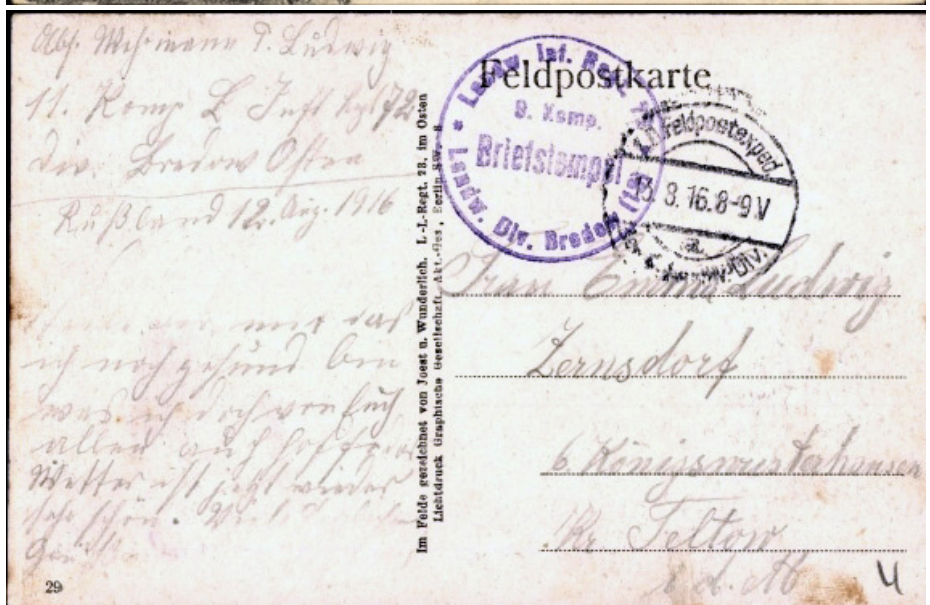 Abs. Wehrmann P. Ludwig
11. Komp L Inft Rgt 72
Div. Bredow Osten
Rußland 12. Aug. 1916
mit das
ich noch gesund bin
was ich doch von Euch
allen auch hoffe
Wetter ist jetzt wieder
sehr schön. Viele
29
Im Felde gezeichnet von Joest u. Wunderlich. L.-L.-Regt. 23. im Osten
Lichtdruck Graphische Gesellschaft Akt.-Ges., Berlin SW. 8
Feldpostkarte
Landw. Inf. Regt. 72
9. Komp.
Briefstempel
Landw. Div. Bredow
Feldpostexped.
13.8.16.8-9V
Div.
Frau Emma Ludwig
Zernsdorf
b Königswusterhausen
Kr. Teltow
4